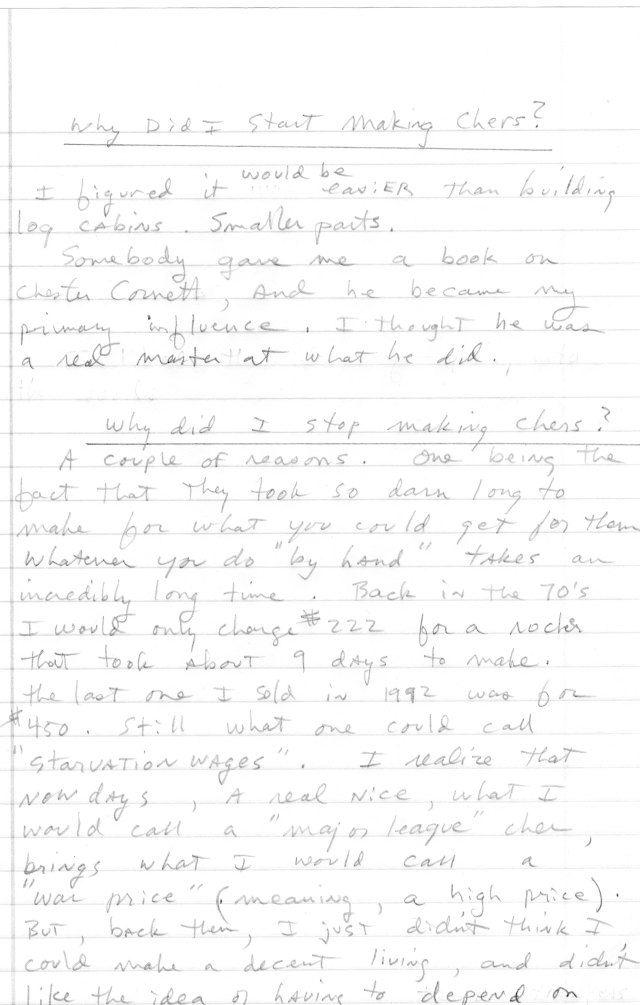 Why Did I Start Making Chers?
I figured it would be easiER than building
log cabins. Smaller parts.
Somebody gave me a book on
Chester Cornett, and he became my
primary influence. I thought he was
a real "master" at what he did.
Why did I stop making chers?
A couple of reasons. One being the
fact that they took so darn long to
make for what you could get for them
whatever you do "by hand" takes an
incredibly long time. Back in the 70's
I would only charge $222 for a rocker
that took about 9 days to make.
the last one I sold in 1992 was for
$450. Still what one could call
"starvation wages". I realize that
now days, a real nice, what I
would call a "major league" cher,
brings what I would call a
"war price" (meaning, a high price).
But, back then, I just didn't think I
could make a decent living, and didn't
like the idea of having to depend on